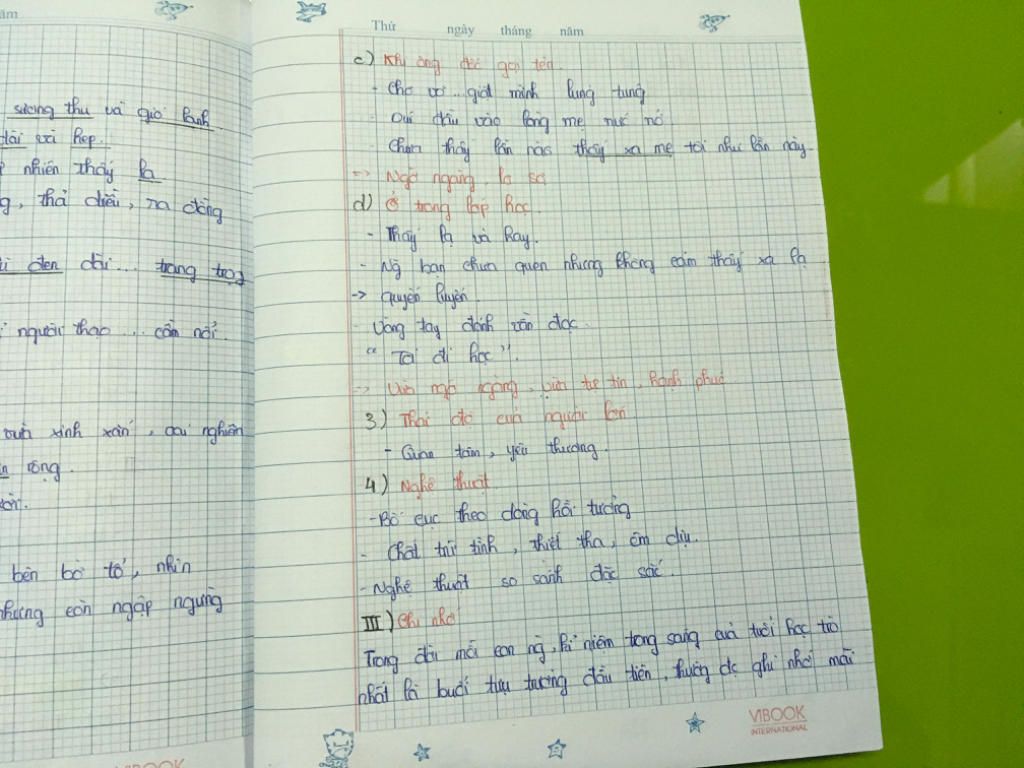 ăm
sương thu và gió lạnh
dài và hẹp.
nhiên thấy lạ
g, thả diều, ra đồng
đen dài... trang trọng
người thạo... cầm nổi.
xinh xắn, oai nghiêm
rộng.
bên bờ tổ, nhìn
nhưng còn ngập ngừng
VIBOOK
Thứ ngày tháng năm
c) Khi ông đốc gọi tên.
- Cho vơ... giật mình lung tung
- Dúi đầu vào lòng mẹ nức nở
- Chưa thấy lần nào thấy xa mẹ tôi như lần này.
=> Ngỡ ngàng, lo sợ
d) Ở trong lớp học.
- Thấy lạ và hay.
- Ng bạn chưa quen nhưng không cảm thấy xa lạ
-> quyến luyến.
- Vòng tay đánh vần đọc.
" Tôi đi học ".
=> Vừa ngỡ ngàng, vừa tự tin, hạnh phúc.
3) Thái độ của người lớn
- Quan tâm, yêu thương.
4) Nghệ thuật
- Bố cục theo dòng hồi tưởng
- Chất trữ tình, thiết tha, êm dịu.
- Nghệ thuật so sánh đặc sắc.
III) Ghi nhớ
Trong đời mỗi con ng, kỉ niệm trong sáng của tuổi học trò
nhất là buổi tựu trường đầu tiên, thường đc ghi nhớ mãi
VIBOOK
INTERNATIONAL